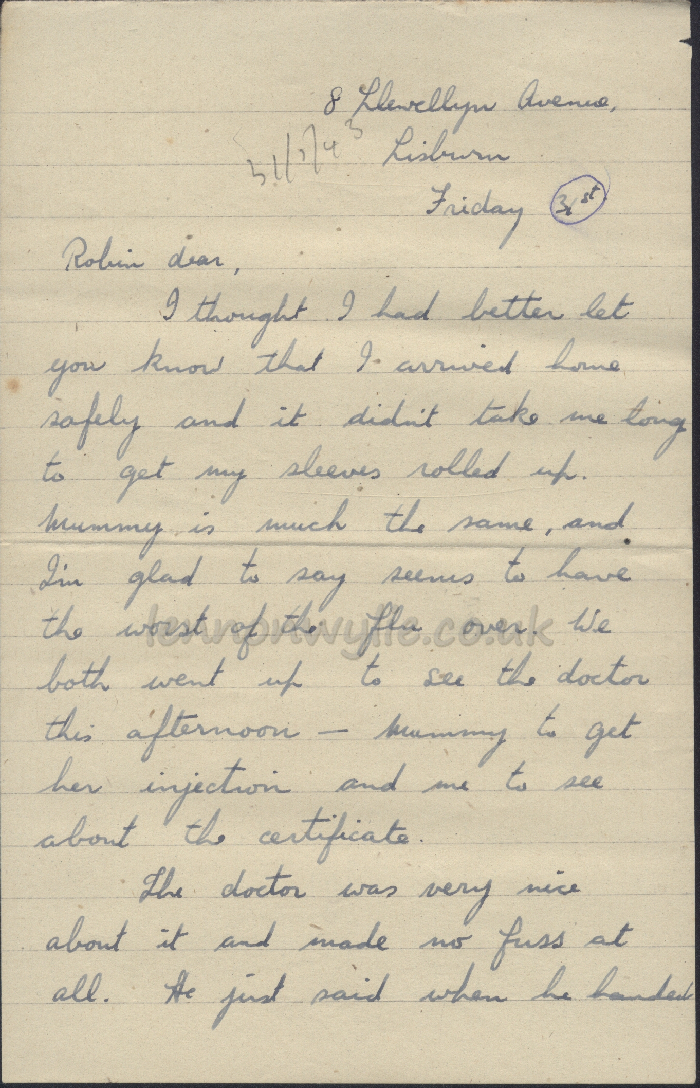 8 Llewellyn Avenue,
Lisburn
Friday 31st
Robin dear,
I thought I had better let
you know that I arrived home
safely and it didn't take me long
to get my sleeves rolled up.
Mummy is much the same, and
I'm glad to say seems to have
the worst of the flu over. We
both went up to see the doctor
this afternoon — Mummy to get
her injection and me to see
about the certificate.
The doctor was very nice
about it and made no fuss at
all. He just said when he handed
lennonwylie.co.uk